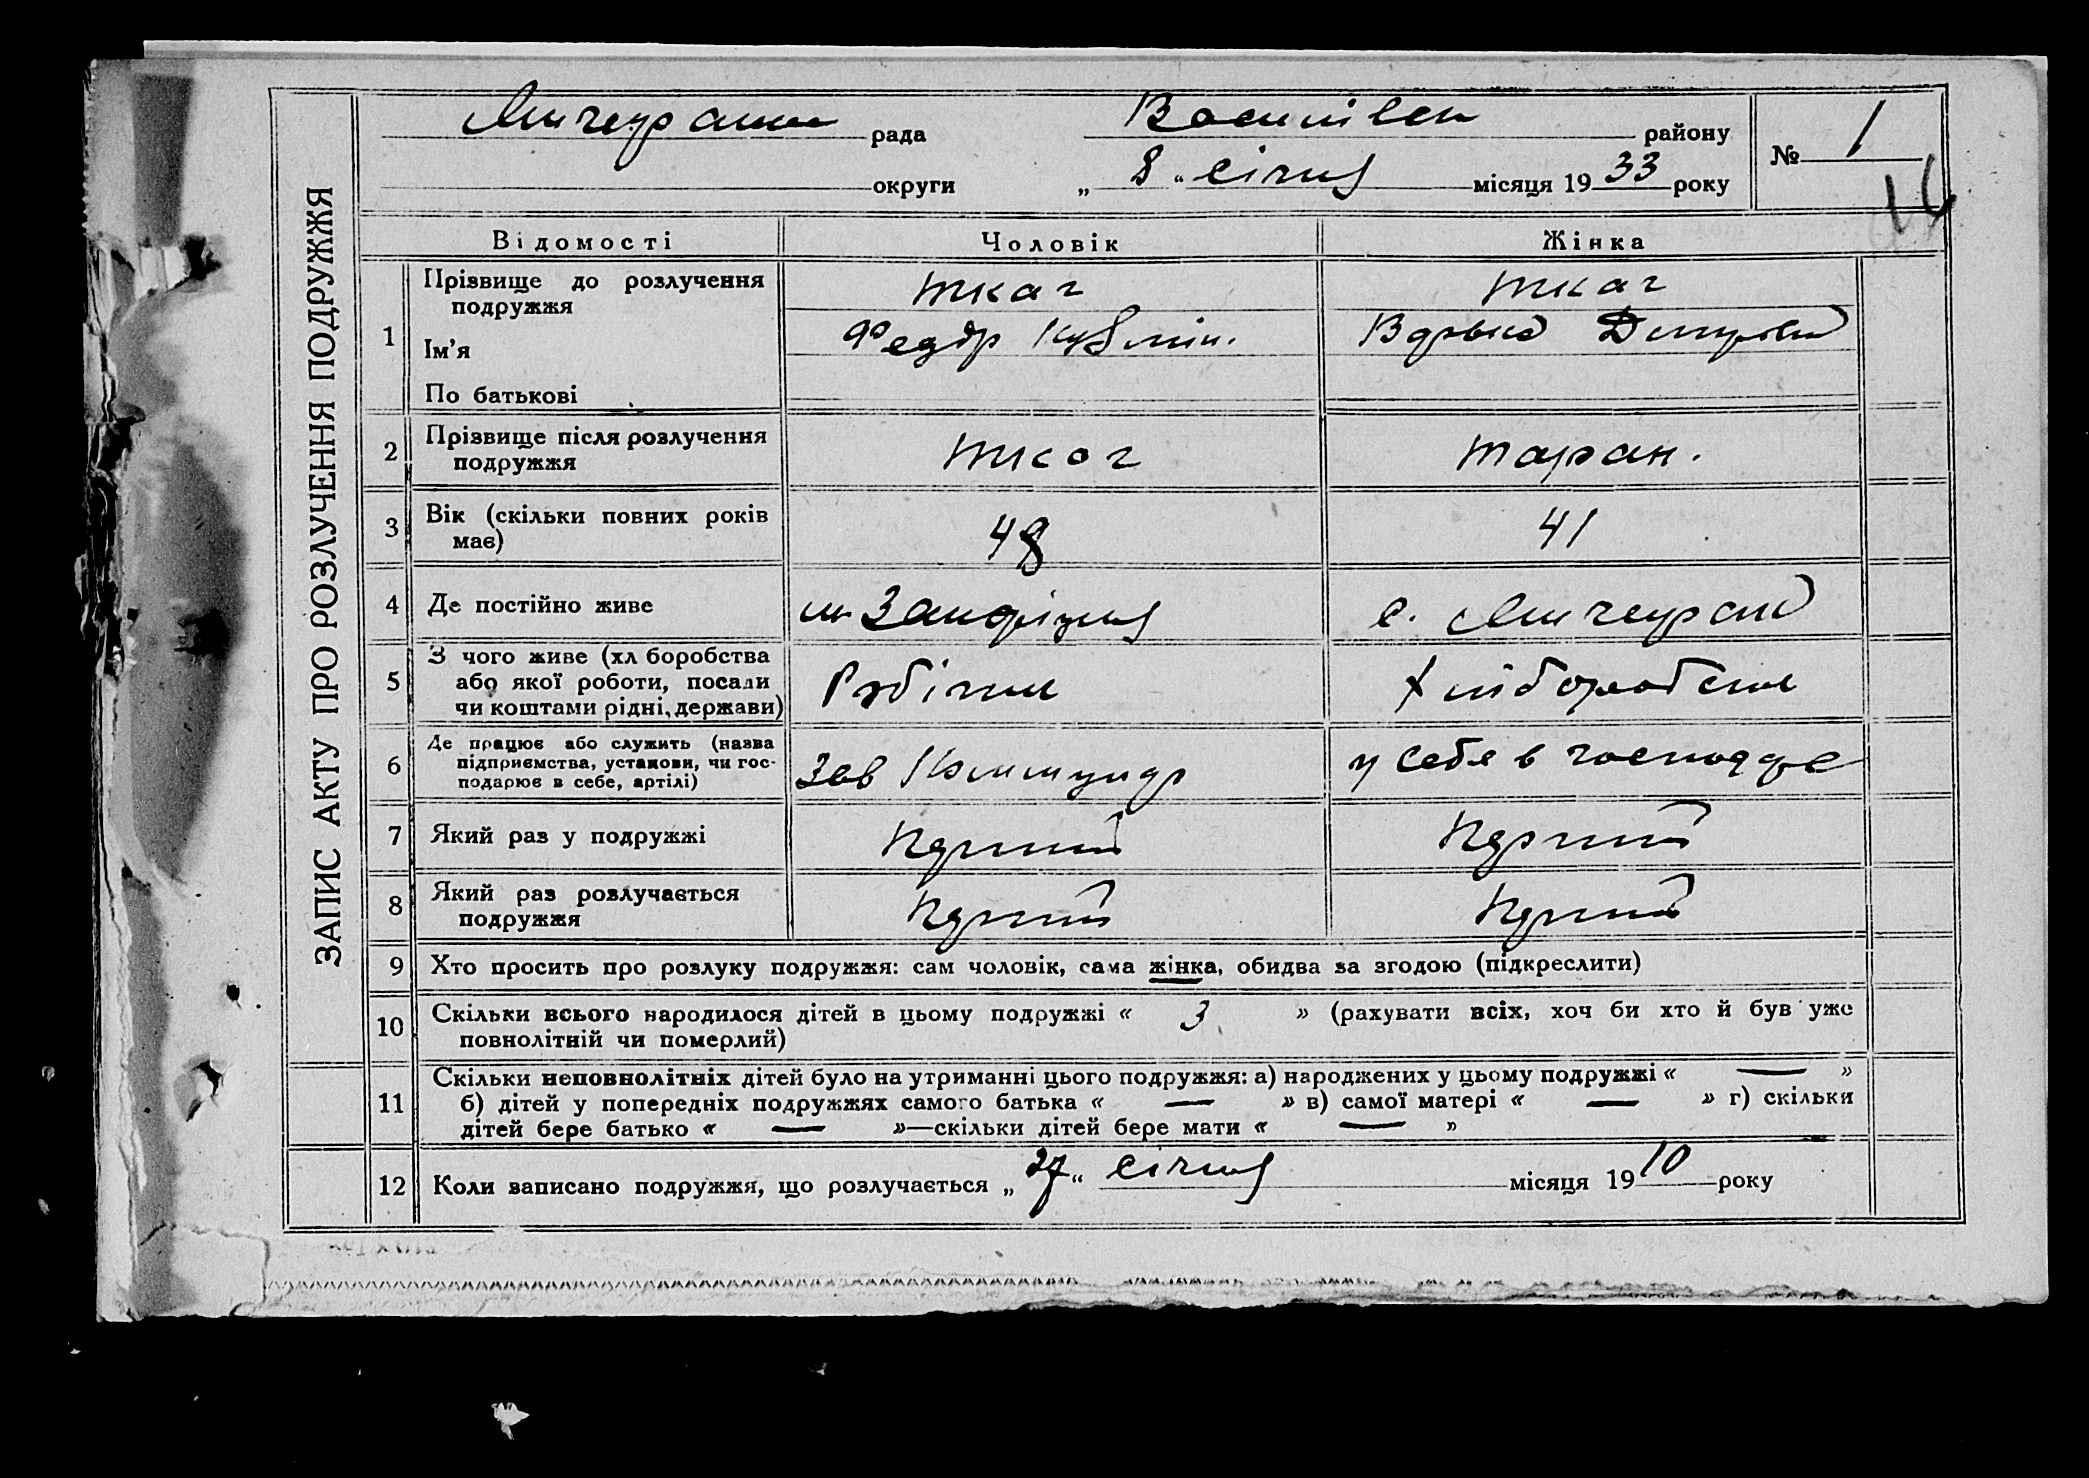 рада Василівськ району № 1
округи „ 8 “ січня місяця 19 33 року
14
ЗАПИС АКТУ ПРО РОЗЛУЧЕННЯ ПОДРУЖЖЯ
Відомості Чоловік Жінка
1 Прізвище до розлучення подружжя Ткач Ткач
Ім’я Федір Кузьмін.
По батькові
2 Прізвище після розлучення подружжя Ткач Таран.
3 Вік (скільки повних років має) 48 41
4 Де постійно живе с.
5 З чого живе (хліборобства або якої роботи, посади чи коштами рідні, держави) Робітник
6 Де працює або служить (назва підприємства, установи, чи господарює в себе, артілі) Зав Комунар у себе в господарс
7 Який раз у подружжі Перший Перший
8 Який раз розлучається подружжя Перший Перший
9 Хто просить про розлуку подружжя: сам чоловік, сама жінка, обидва за згодою (підкреслити)
10 Скільки всього народилося дітей в цьому подружжі « 3 » (рахувати всіх, хоч би хто й був уже
повнолітній чи померлий)
11 Скільки неповнолітніх дітей було на утриманні цього подружжя: а) народжених у цьому подружжі « — »
б) дітей у попередніх подружжях самого батька « — » в) самої матері « — » г) скільки
дітей бере батько « — »—скільки дітей бере мати « — »
12 Коли записано подружжя, що розлучається „ 27 “ січня місяця 19 10 року